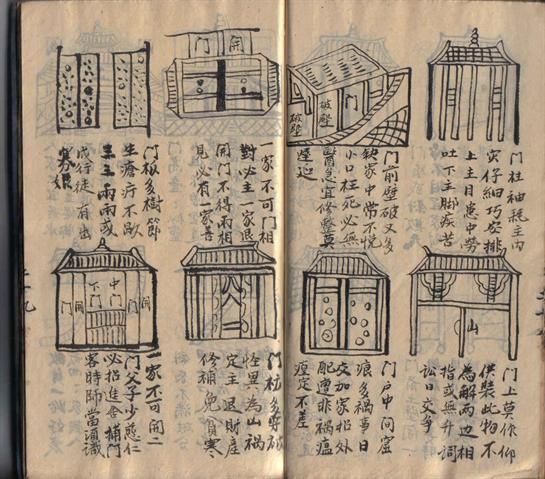 门柱袖疏主内
灾仔細巧安排
上主目患中勞
吐下主脚疾苦
破壁
破壁
门
门前壁破又多
缺家中常不悦
小口枉死必無
急宜修整莫
遲延
開门
一家不可门相
對必主一家退
開门不得兩相
見必有一家善
门板多樹節
生瘡疔不歇
兩兩或
成行徒有出
寡娘
山
门上莫作仰
供裝此物不
為解两边相
指或無升詞
訟日交爭
门户中间窟
痕多禍事日
交加家招外
配遭非禍瘟
定不差
门板多穿破
怪異為山禍
定主退財産
修補免貧寒
開门
中门
下门
開门
一家不可開二
门父子少慈仁
必招進舍捕门
客時師當須識